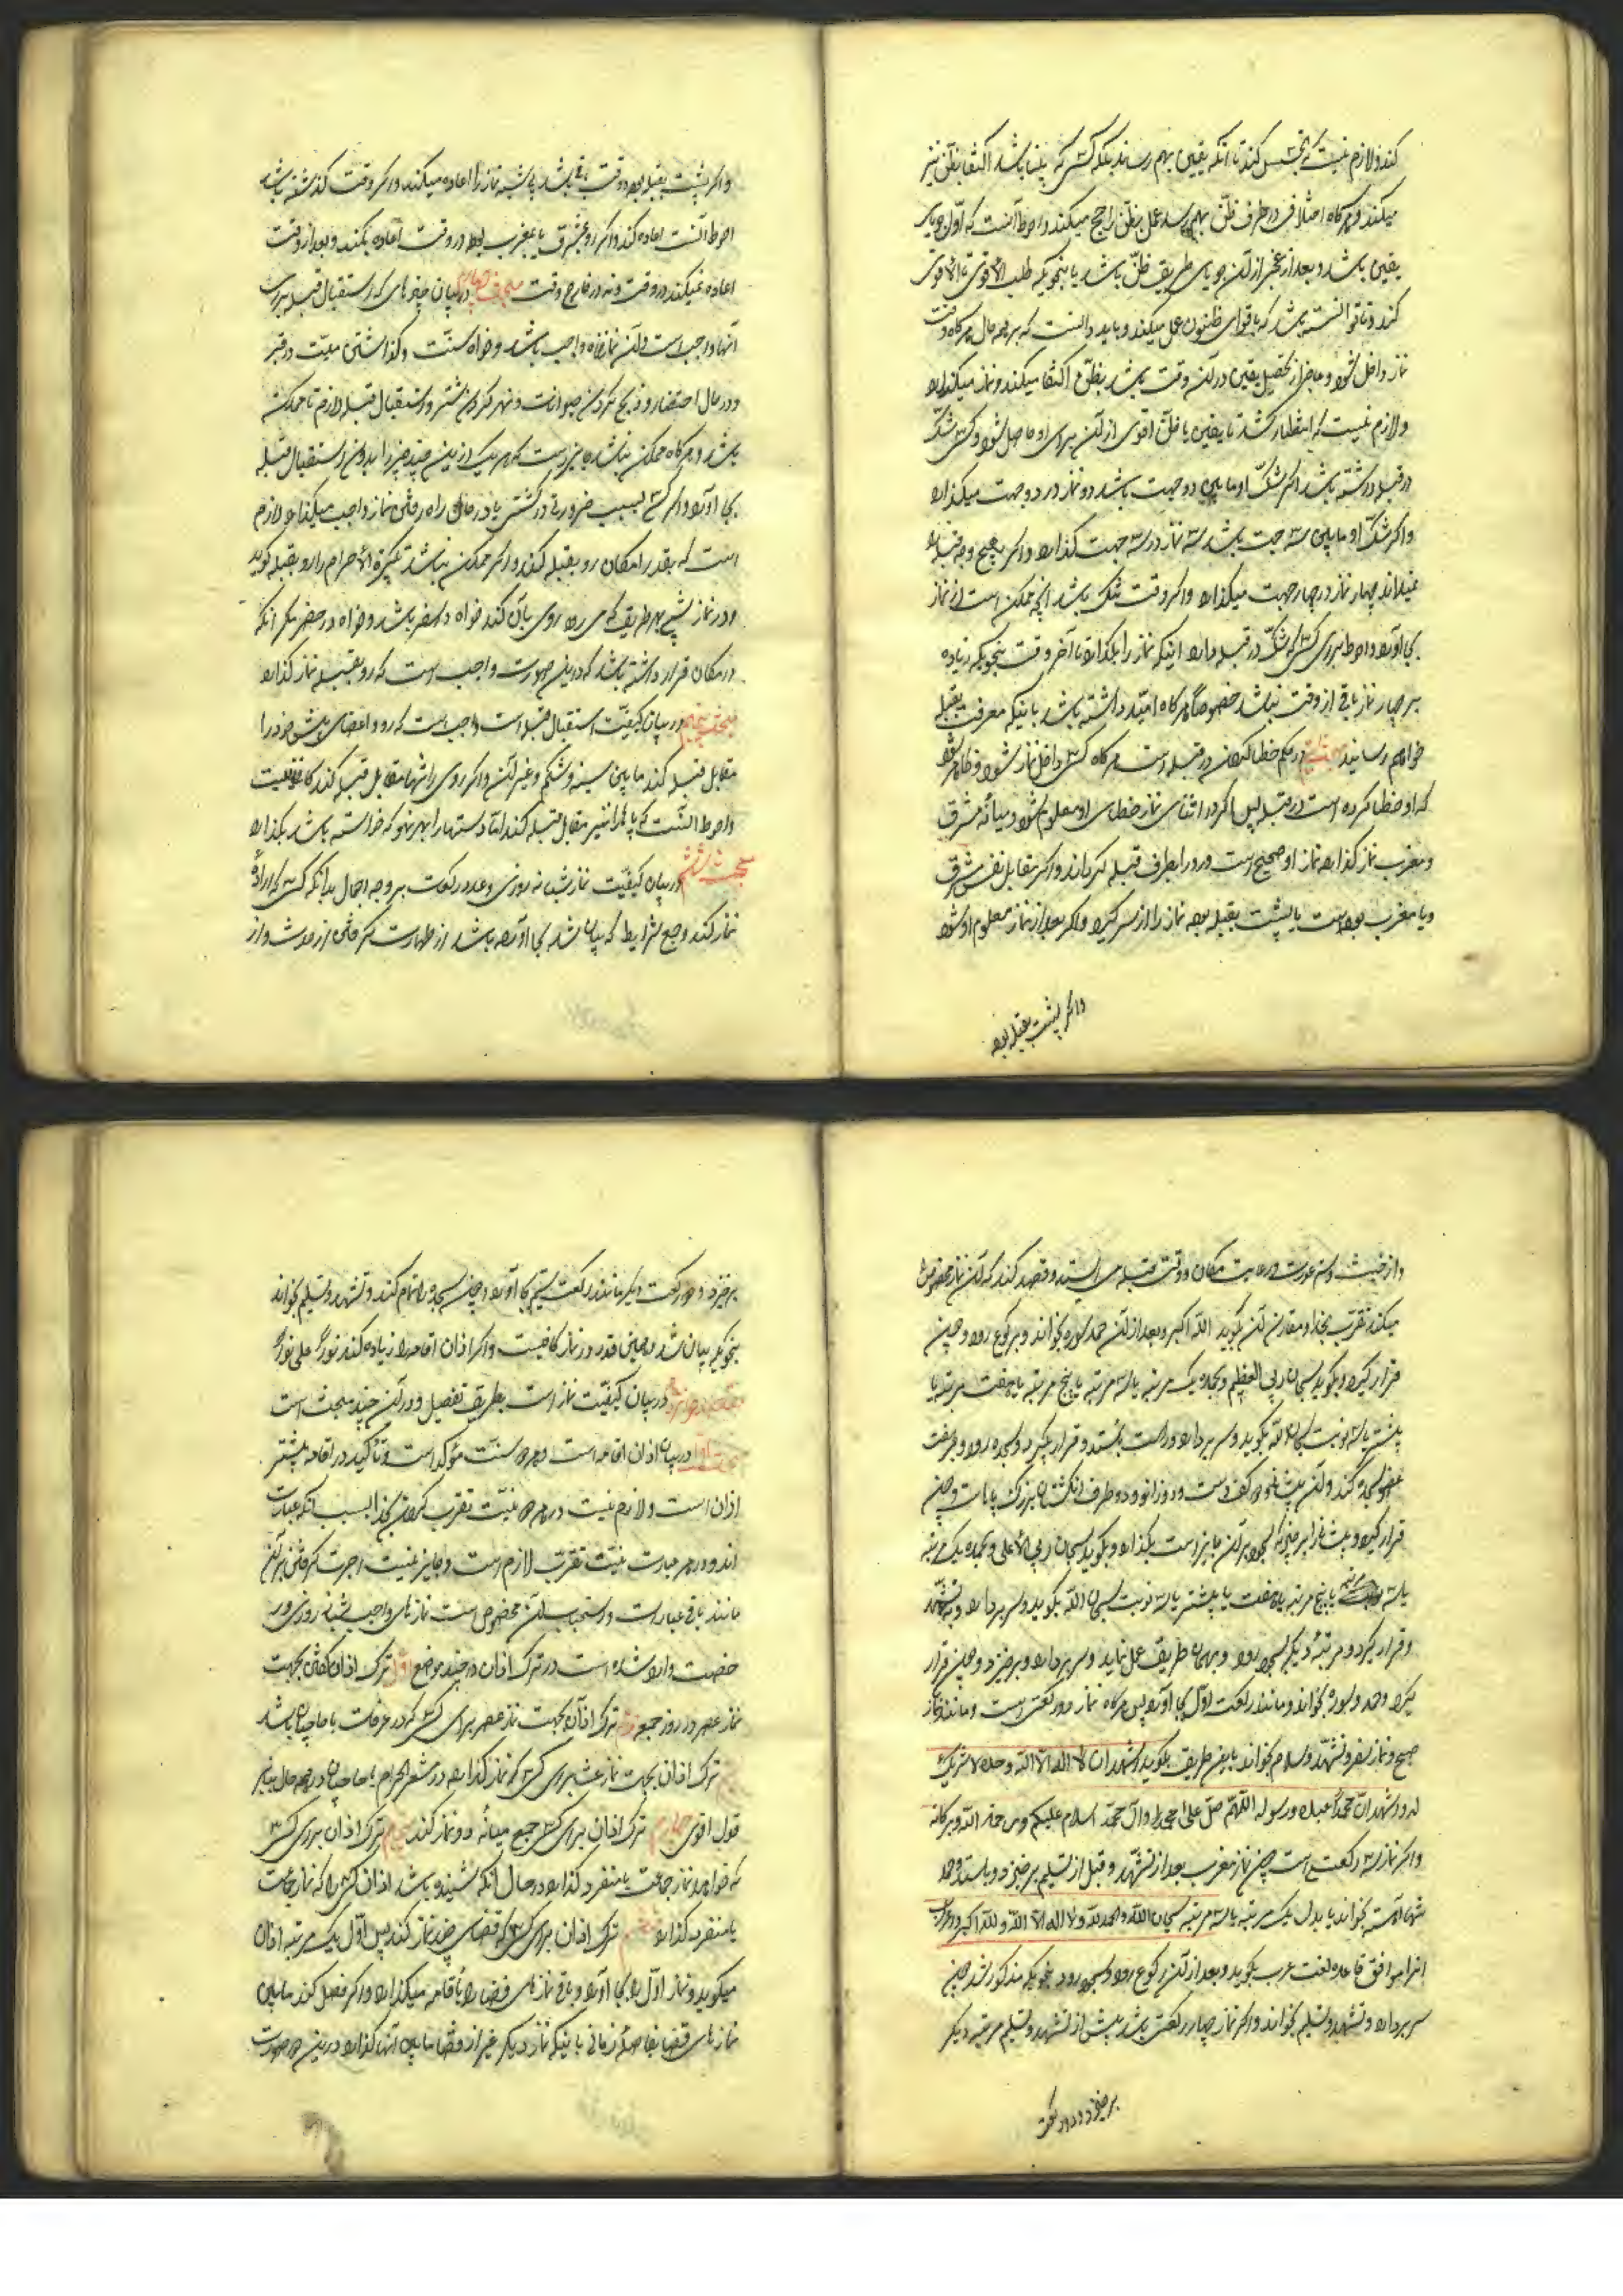 کند و لازم نیست که تجسس کند تا آنکه یقین بهم رساند بلکه کسی که بینا باشد اکتفا بظن نیز
میکند و هر گاه اختلافی در طرف ظن بهم رسد عمل بظن راجح میکند و احوط آنست که اول جویای
یقین باشد و بعد از عجز از آن جویای طریق ظن باشد باینجویکه طلب الاقوی فالاقوی
کند و تا توانسته باشد که باقوای ظنون عمل میکند و باید دانست که بر همه حال هر گاه وقت
نماز داخل شود و عاجز از تحصیل یقین در آن وقت باشد بظن اکتفا میکند و نماز میکذارد
و لازم نیست که انتظار کشد تا یقین یا ظن اقوی از آن برای او حاصل شود و کسی شک
در قبله داشته باشد اگر شک او مابین دو جهت باشد دو نماز در دو جهت میکذارد
و اگر شک او مابین سه جهت باشد سه نماز در سه جهت کذارد و اگر بهیچ وجه قبله را
نمیداند چهار نماز در چهار جهت میکذارد و اگر وقت تنگ باشد آنچه ممکن است از نماز
بجا آورد و احوط برای کسی که شک در قبله دارد اینکه نماز را بکذارد تا آخر وقت بنحویکه زیاده
بر چهار نماز باقی از وقت نباشد خصوصا هر گاه امید داشته باشد باینکه معرفت بقبله
خواهم رسانید در حکم خطا کردن در قبله است هر گاه کسی داخل نماز شود و ظاهر شود
که او خطا کرده است در قبله پس اگر در اثنای نماز خطای او معلوم شود و میانه مشرق
و مغرب نماز کذارد نماز او صحیح است و رو را بطرف قبله گرداند و اگر مقابل نفس مشرق
و یا مغرب بوده است یا پشت بقبله بوده نماز را از سر گیرد و اگر بعد از نماز معلوم او شود
و اگر پشت بقبله بود
و اگر پشت بقبله بود و وقت باقی باشد البته نماز را اعاده میکند و اگر وقت کذشته باشد
احوط آنست اعاده کند و اگر رو بمشرق یا بمغرب بود در وقت اعاده بکند و بعد از وقت
اعاده نمیکند در وقت و نه در خارج وقت مبحث چهارم در بیان چیزهای که استقبال قبله برای
آنها واجب است و آن نماز خواه واجب باشد و خواه سنت و کذاشتن میت در قبر
و در حال احتضار و ذبح کردن حیوانات و نحر کردن شتر و استقبال قبله لازم تا ممکن
باشد و هر گاه ممکن نباشد جایز است که هر یک از این چند چیز را بدون استقبال قبله
بجا آورد و اگر کسی بسبب ضرورت در کشتی یا در حال راه رفتن نماز واجب میکذارد لازم
است که بقدر امکان رو بقبله کند و اگر ممکن نباشد تکبیرة الاحرام را رو بقبله گوید
و در نماز سنتی بهر طریق که می رود روی بآن کند خواه در سفر باشد و خواه در حضر مگر آنکه
در مکان قرار داشته باشد که در این صورت واجب است که رو بقبله نماز کذارد
مبحث پنجم در بیان کیفیت استقبال قبله است واجب است که رو و اعضای پیش خود را
مقابل قبله کند مابین سینه و شکم و غیر آن و اگر روی را تنها مقابل قبله کند کافی نیست
و احوط آنست که پاها را نیز مقابل قبله کند اما دستها را بهر نحو که خواسته باشد بکذارد
مبحث ششم در بیان کیفیت نماز شبانه روزی و عدد رکعات بر وجه اجمال بدانکه کسی که اراده
نماز کند و جمیع شرایط که بیان شد بجا آورده باشد از طهارت گرفتن از حدث و از
و از خبث و ستر عورت و رعایت مکان و وقت قبله می ایستد و قصد کند که آن نماز مخصوص را
میکند تقرب بخدا و مقارن آن بگوید الله اکبر و بعد از آن حمد و سوره بخواند و برکوع رود و چون
قرار گیرد بگوید سبحان ربی العظیم و بحمده یک مرتبه یا سه مرتبه یا پنج مرتبه یا هفت مرتبه یا
بیشتر یا سه نوبت سبحان الله بگوید و سر بردارد و راست بایستد و قرار بگیرد و بسجده رود و بر هفت
عضو سجده کند و آن پیشانی و دو کف دست و دو زانو و دو طرف انگشتان بزرگ پاها است و چون
قرار گیرد و پیشانی را بر چیزی که سجود بر آن جایز است بکذارد و بگوید سبحان ربی الاعلی و بحمده یک مرتبه
یا سه مرتبه یا پنج مرتبه یا هفت یا بیشتر یا سه نوبت سبحان الله بگوید و سر بردارد و بنشیند
و قرار گیرد و مرتبه دیگر بسجود رود و بهمان طریق عمل نماید و سر بردارد و برخیزد و چون قرار
گیرد و حمد و سوره بخواند و مانند رکعت اول بجا آورد پس هر گاه نماز دو رکعتی است مانند نماز
صبح و نماز سفر و تشهد و سلام بخواند باین طریق بگوید اشهد ان لا اله الا الله وحده لا شریک
له و اشهد ان محمدا عبده و رسوله اللهم صل علی محمد و آل محمد السلام علیکم و رحمة الله و برکاته
و اگر نماز سه رکعتی است چون نماز مغرب بعد از تشهد و قبل از تسلیم برخیزد و بایستد و حمد
تنها آهسته بخواند یا بدل یک مرتبه یا سه مرتبه سبحان الله و الحمد لله و لا اله الا الله و الله اکبر و اعراب
اینرا موافق قاعده لغت عرب بگوید و بعد از آن رکوع رود و بسجود رود بنحویکه مذکور شد چون
سر بردارد و تشهد و تسلیم بخواند و اگر نماز چهار رکعتی باشد پیش از تشهد و تسلیم مرتبه دیگر
برخیزد و دو رکعت
برخیزد و دو رکعت دیگر مانند رکعت سیم بجا آورد و چون سجده را تمام کند و تشهد و تسلیم بخواند
بنحویکه بیان شد و همین قدر در نماز کافیست و اگر اذان اقامه را زیاده کند نورا علی نورا
در بیان کیفیت نماز است بطریق تفصیل و در آن چند مبحث است
مبحث اول در بیان اذان اقامه است و هر دو سنت مؤکد است و تأکید در اقامه بیشتر
اذان است و لازم نیست در هر دو نیت تقرب کردن بخدا بسبب آنکه عبادت
اند و در هر عبادت نیت تقرب لازم است و جایز نیست اجرت گرفتن بر آن
مانند باقی عبادات و استحباب آن مخصوص است نمازهای واجب شبانه روزی و
خصت وارد شده است در ترک اذان در چند موضع اول ترک اذان گفتن بجهت
نماز عصر در روز جمعه دوم ترک اذان بجهت نماز عصر برای کسی که در عرفات با حاجیان باشد
ترک اذان بجهت نماز عشا برای کسی که نماز کذارد در مشعر الحرام با حاجیان و در همه حال بنابر
قول اقوی چهارم ترک اذان برای کسی جمع میانه دو نماز کند پنجم ترک اذان برای کسی
که خواهد نماز جماعت یا منفرد کذارد در حال آنکه شنیده باشد اذان کسی را که نماز جماعت
یا منفرد کذارد ششم ترک اذان برای کسی که قضای چند نماز کند پس اول یک مرتبه اذان
میگوید و نماز اول را بجا آورد و باقی نمازهای قضا را باقامه میکذارد و اگر فصل کند مابین
نمازهای قضا بفاصله زمانی باینکه نماز دیگر غیر از قضا مابین آنها کذارد در این صورت